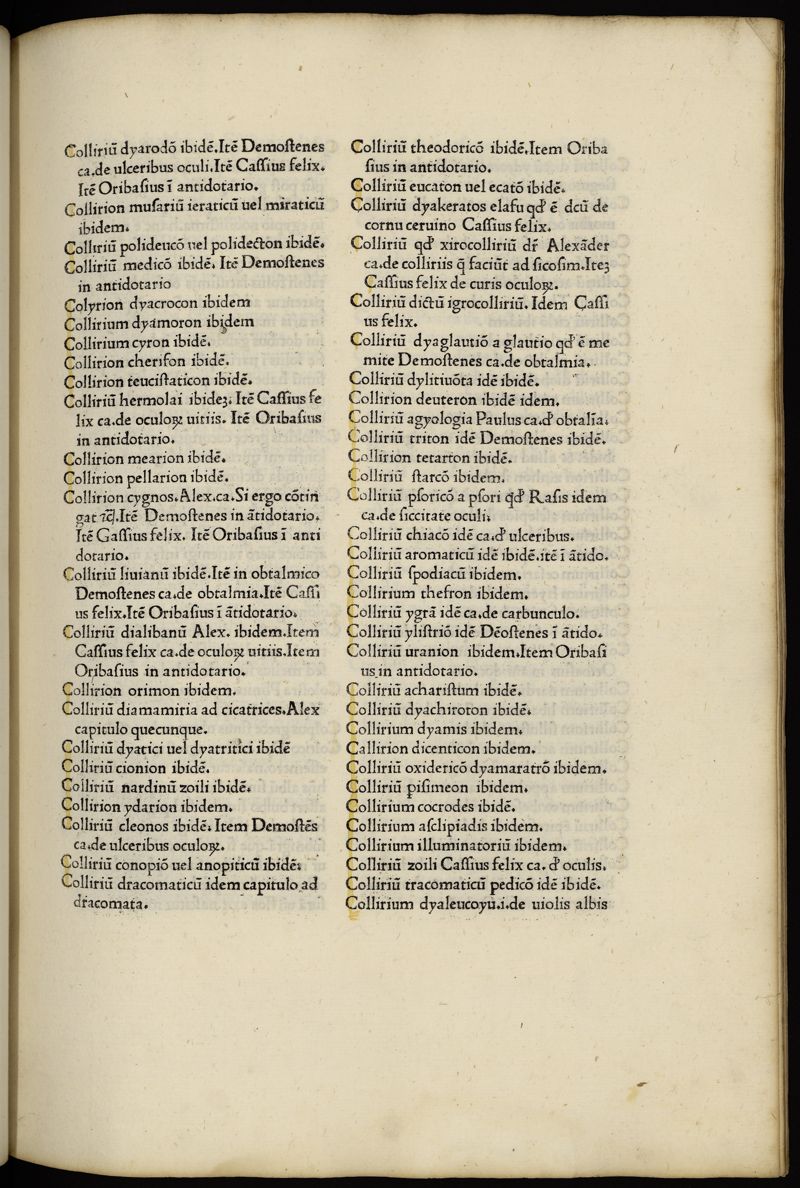 Colliriū dyarodō ibidē.Itē Demoſtenes
ca.de ulceribus oculi.Itē Caſſius felix.
Itē Oribaſius ī antidotario.
Collirion muſariū ieraticū uel miraticū
ibidem.
Colliriū polideucō uel polidecton ibidē.
Colliriū medicō ibidē. Itē Demoſtenes
in antidotario
Colyrion dyacrocon ibidem
Collirium dyāmoron ibidem
Collirium cyron ibidē.
Collirion cheriſon ibidē.
Collirion teuciſtaticon ibidē.
Colliriū hermolai ibideꝫ. Itē Caſſius fe
lix ca.de oculoꝝ uitiis. Itē Oribaſius
in antidotario.
Collirion mearion ibidē.
Collirion pellarion ibidē.
Collirion cygnos.Alex.ca.Si ergo cōtin
gat Itē Demoſtenes in ātidotario.
Itē Gaſſius felix. Itē Oribaſius ī anti
dotario.
Colliriū liuianū ibidē.Itē in obtalmico
Demoſtenes ca.de obtalmia.Itē Caſſi
us felix.Itē Oribaſius ī ātidotario.
Colliriū dialibanū Alex. ibidem.Item
Caſſius felix ca.de oculoꝝ uitiis.Item
Oribaſius in antidotario.
Collirion orimon ibidem.
Colliriū diamamiria ad cicatrices.Alex
capitulo quecunque.
Colliriū dyatici uel dyatritici ibidē
Colliriū cionion ibidē.
Colliriū nardinū zoili ibidē.
Collirion ydarion ibidem.
Colliriū cleonos ibidē. Item Demoſtēs
ca.de ulceribus oculoꝝ.
Colliriū conopiō uel anopiticū ibidē.
Colliriū dracomaticū idem capitulo ad
dracomata.
Colliriū theodoricō ibidē.Item Oriba
ſius in antidotario.
Colliriū eucaton uel ecatō ibidē.
Colliriū dyakeratos elafu qđ ē dcū de
cornu ceruino Caſſius felix.
Colliriū qđ xirocolliriū dr̄ Alexāder
ca.de colliriis q̄ faciūt ad ſicoſim.Iteꝫ
Caſſius felix de curis oculoꝝ.
Colliriū dictū igrocolliriū. Idem Caſſi
us felix.
Colliriū dyaglautiō a glautio qđ ē me
mite Demoſtenes ca.de obtalmia.
Colliriū dylitiuōta idē ibidē.
Collirion deuteron ibidē idem.
Colliriū agyologia Paulus ca.đ obtalīa.
Colliriū triton idē Demoſtenes ibidē.
Collirion tetarton ibidē.
Colliriū ſtarcō ibidem.
Colliriū pſoricō a pſori qđ Raſis idem
ca.de ſiccitate oculi.
Colliriū chiacō idē ca.đ ulceribus.
Colliriū aromaticū idē ibidē.itē ī ātido.
Colliriū ſpodiacū ibidem.
Collirium thefron ibidem.
Colliriū ygrā idē ca.de carbunculo.
Colliriū yliſtriō idē Dēoſtenes ī ātido.
Colliriū uranion ibidem.Item Oribaſi
us in antidotario.
Colliriū achariſtum ibidē.
Colliriū dyachiroton ibidē.
Collirium dyamis ibidem.
Callirion dicenticon ibidem.
Colliriū oxidericō dyamaratrō ibidem.
Colliriū piſimeon ibidem.
Collirium cocrodes ibidē.
Collirium aſclipiadis ibidem.
Collirium illuminatoriū ibidem.
Colliriū zoili Caſſius felix ca. đ oculis.
Colliriū tracomaticū pedicō idē ibidē.
Collirium dyaleucoyū.i.de uiolis albis